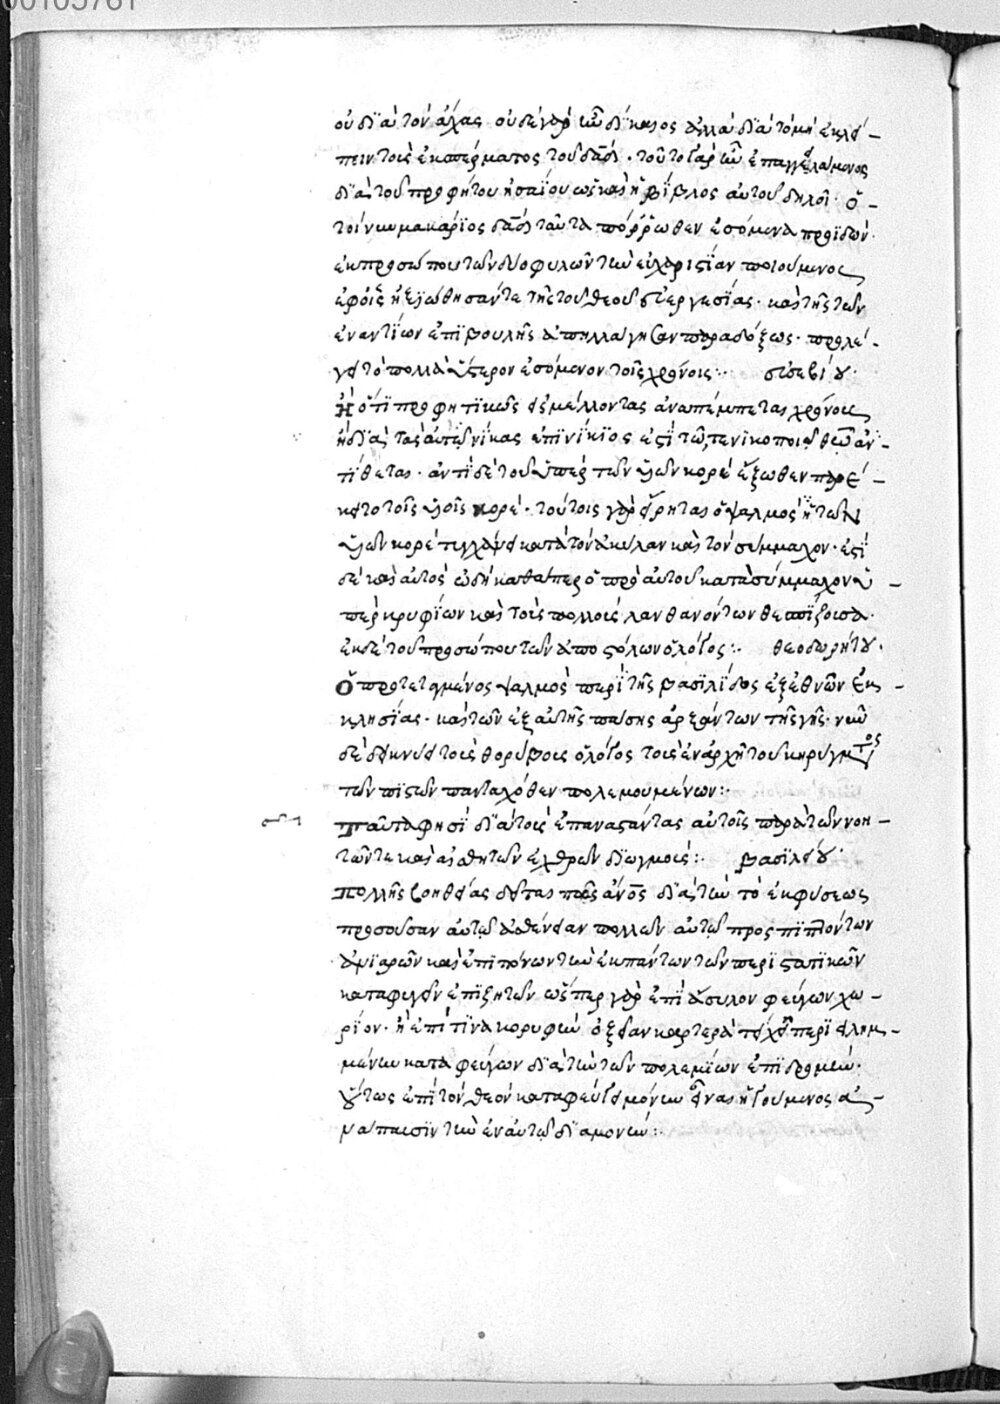 00105761
οὐ διὰ τὸν ἄχας οὐδὲ γὰρ ἦν δίκαιος ἀλλὰ διὰ τὸ μὴ ἐκλεί–
πειν τοὺς ἐκ σπέρματος τοῦ δαδ· τοῦτο γὰρ ἦν ἐπαγγειλάμενος
διὰ τοῦ προφήτου ἡσαΐου ὡς καὶ ἡ βίβλος αὐτοῦ δηλοῖ· ὁ–
τοίνυν μακάριος δαδ ταῦτα πόρρωθεν ἐσόμενα προϊδών·
ἐκ προσώπου τῶν δύο φυλῶν τὴν εὐχαριστίαν ποιούμενος
ἐφ' οἷς ἠξιώθησάν τε τῆς τοῦ θεοῦ εὐεργεσίας· καὶ τῆς τῶν
ἐναντίων ἐπιβουλῆς ἀπηλλάγησαν παραδόξως· προλέ–
γει τὸ πολλὰ ὕστερον ἐσόμενον τοῖς χρόνοις:· εὐσεβίου·
Ἢ ὅτι προφητικῶς εἰς μέλλοντας ἀναπέμπεται χρόνους
ἢ διὰ τὰς αὐτῶν νίκας ἐπινίκιος ἐστὶ τῷ νικοποιῷ θεῷ ἀν–
τίθεται· ἀντὶ δὲ τοῦ ὑπὲρ τῶν υἱῶν κορὲ ἔξωθεν παρέ–
κειτο τοῖς υἱοῖς κορέ· τούτοις γὰρ εἴρηται ὁ ψαλμὸς ἢ τῶν
υἱῶν κορὲ τυγχάνει κατὰ τὸν ἀκύλαν καὶ τὸν σύμμαχον· ἐστὶ
δὲ καὶ αὐτὸς ᾠδὴ καθάπερ ὁ πρὸ αὐτοῦ κατὰ σύμμαχον ὑ–
πὲρ κρυφίων καὶ τοὺς πολλοὺς λανθανόντων θεσπίζουσα·
ἐκ δὲ τοῦ προσώπου τῶν ἀποστόλων ὁ λόγος:· θεοδωρήτου·
Ὁ προτεταγμένος ψαλμὸς περὶ τῆς βασιλίδος ἐξ ἐθνῶν ἐκ–
κλησίας· καὶ τῶν ἐξ αὐτῆς πάσης ἀρξάντων τῆς γῆς· νῦν
δὲ δείκνυσι τοὺς θορύβους ὁ λόγος τοὺς ἐν ἀρχῇ τοῦ κηρύγματος
τῶν πιστῶν πανταχόθεν πολεμουμένων:·
Ταῦτά φησι διὰ τοὺς ἐπαναστάντας αὐτοῖς παρὰ τῶν νοη–
τῶν τε καὶ αἰσθητῶν ἐχθρῶν διωγμούς:· βασιλείου·
Πολλῆς βοηθείας δεῖται πᾶς ἄνος διὰ τὴν τὸ ἐκ φύσεως
προσοῦσαν αὐτῷ ἀσθένειαν πολλῶν αὐτῷ προσπιπτόντων
ἀνιαρῶν καὶ ἐπιπόνων τὴν ἐκ πάντων τῶν περιστατικῶν
καταφυγὴν ἐπιζητῶν ὥσπερ γὰρ ἐπὶ ἄσυλον φεύγων χω–
ρίον· ἢ ἐπί τινα κορυφὴν ὀξεῖαν καρτερὰ τείχη περιειλημ–
μένην καταφεύγων διὰ τὴν τῶν πολεμίων ἐπιδρομήν·
οὕτως ἐπὶ τὸν θεὸν καταφεύγει μόνην εἶναι ἡγούμενος ἀ–
νάπαυσιν τὴν ἐν αὐτῷ διαμονήν:·